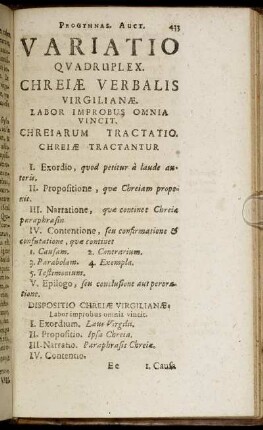 PROGYMNAS. AUCT. 433
VARIATIO
QVADRUPLEX.
CHREIÆ VERBALIS
VIRGILIANÆ.
LABOR IMPROBUS OMNIA
VINCIT.
CHREIARUM TRACTATIO.
CHREIÆ TRACTANTUR
I. Exordio, quod petitur à laude au-
toris.
II. Propositione, quæ Chreiam propo-
nit.
III. Narratione, quæ continet Chreiæ
paraphrasin.
IV. Contentione, seu confirmatione &
confutatione, quæ continet
1. Causam. 2. Contrarium.
3. Parabolam. 4. Exempla.
5. Testimonium.
V. Epilogo, seu conclusione aut perora-
tione.
DISPOSITIO CHREIÆ VIRGILIANÆ:
Labor improbus omnia vincit.
I. Exordium. Laus Virgilii.
II. Propositio. Ipsa Chreia.
III. Narratio. Paraphrasis Chreiæ.
IV. Contentio.
Ee 1. Causa